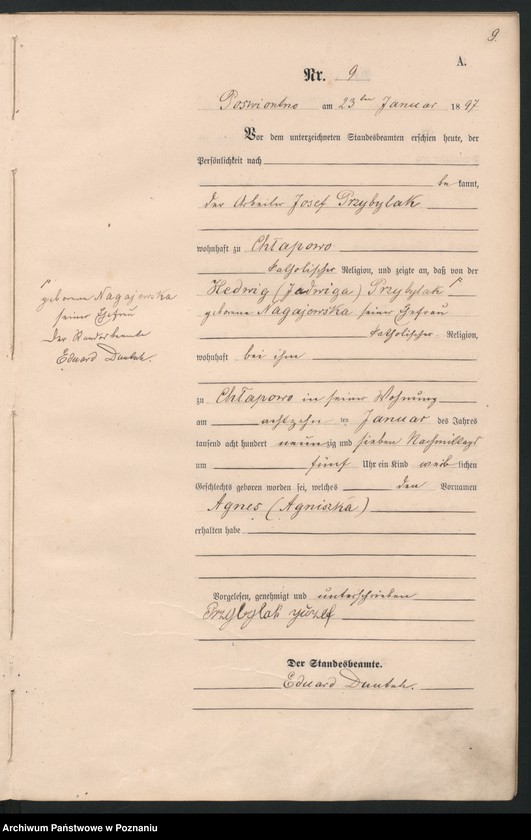 9.
A.
Nr. 9
Poswiontno am 23ten Januar 1897
Vor dem unterzeichneten Standesbeamten erschien heute, der
Persönlichkeit nach
be kannt,
der Arbeiter Josef Przybylak
wohnhaft zu Chłapowo
katholischer Religion, und zeigte an, daß von der
Hedwig (Jadwiga) Przybylak
geborene Nagajewska seiner Ehefrau
katholischer Religion,
wohnhaft bei ihm
zu Chłapowo in seiner Wohnung
am achtzehn ten Januar des Jahres
tausend acht hundert neunzig und sieben Nachmittags
um fünf Uhr ein Kind weiblichen
Geschlechts geboren worden sei, welches den Vornamen
Agnes (Agniszka)
erhalten habe
Vorgelesen, genehmigt und unterschrieben
Przybylak
Der Standesbeamte.
Eduard
geborene Nagajewska
seiner Ehefrau
Der Standesbeamte
Eduard
Archiwum Państwowe w Poznaniu